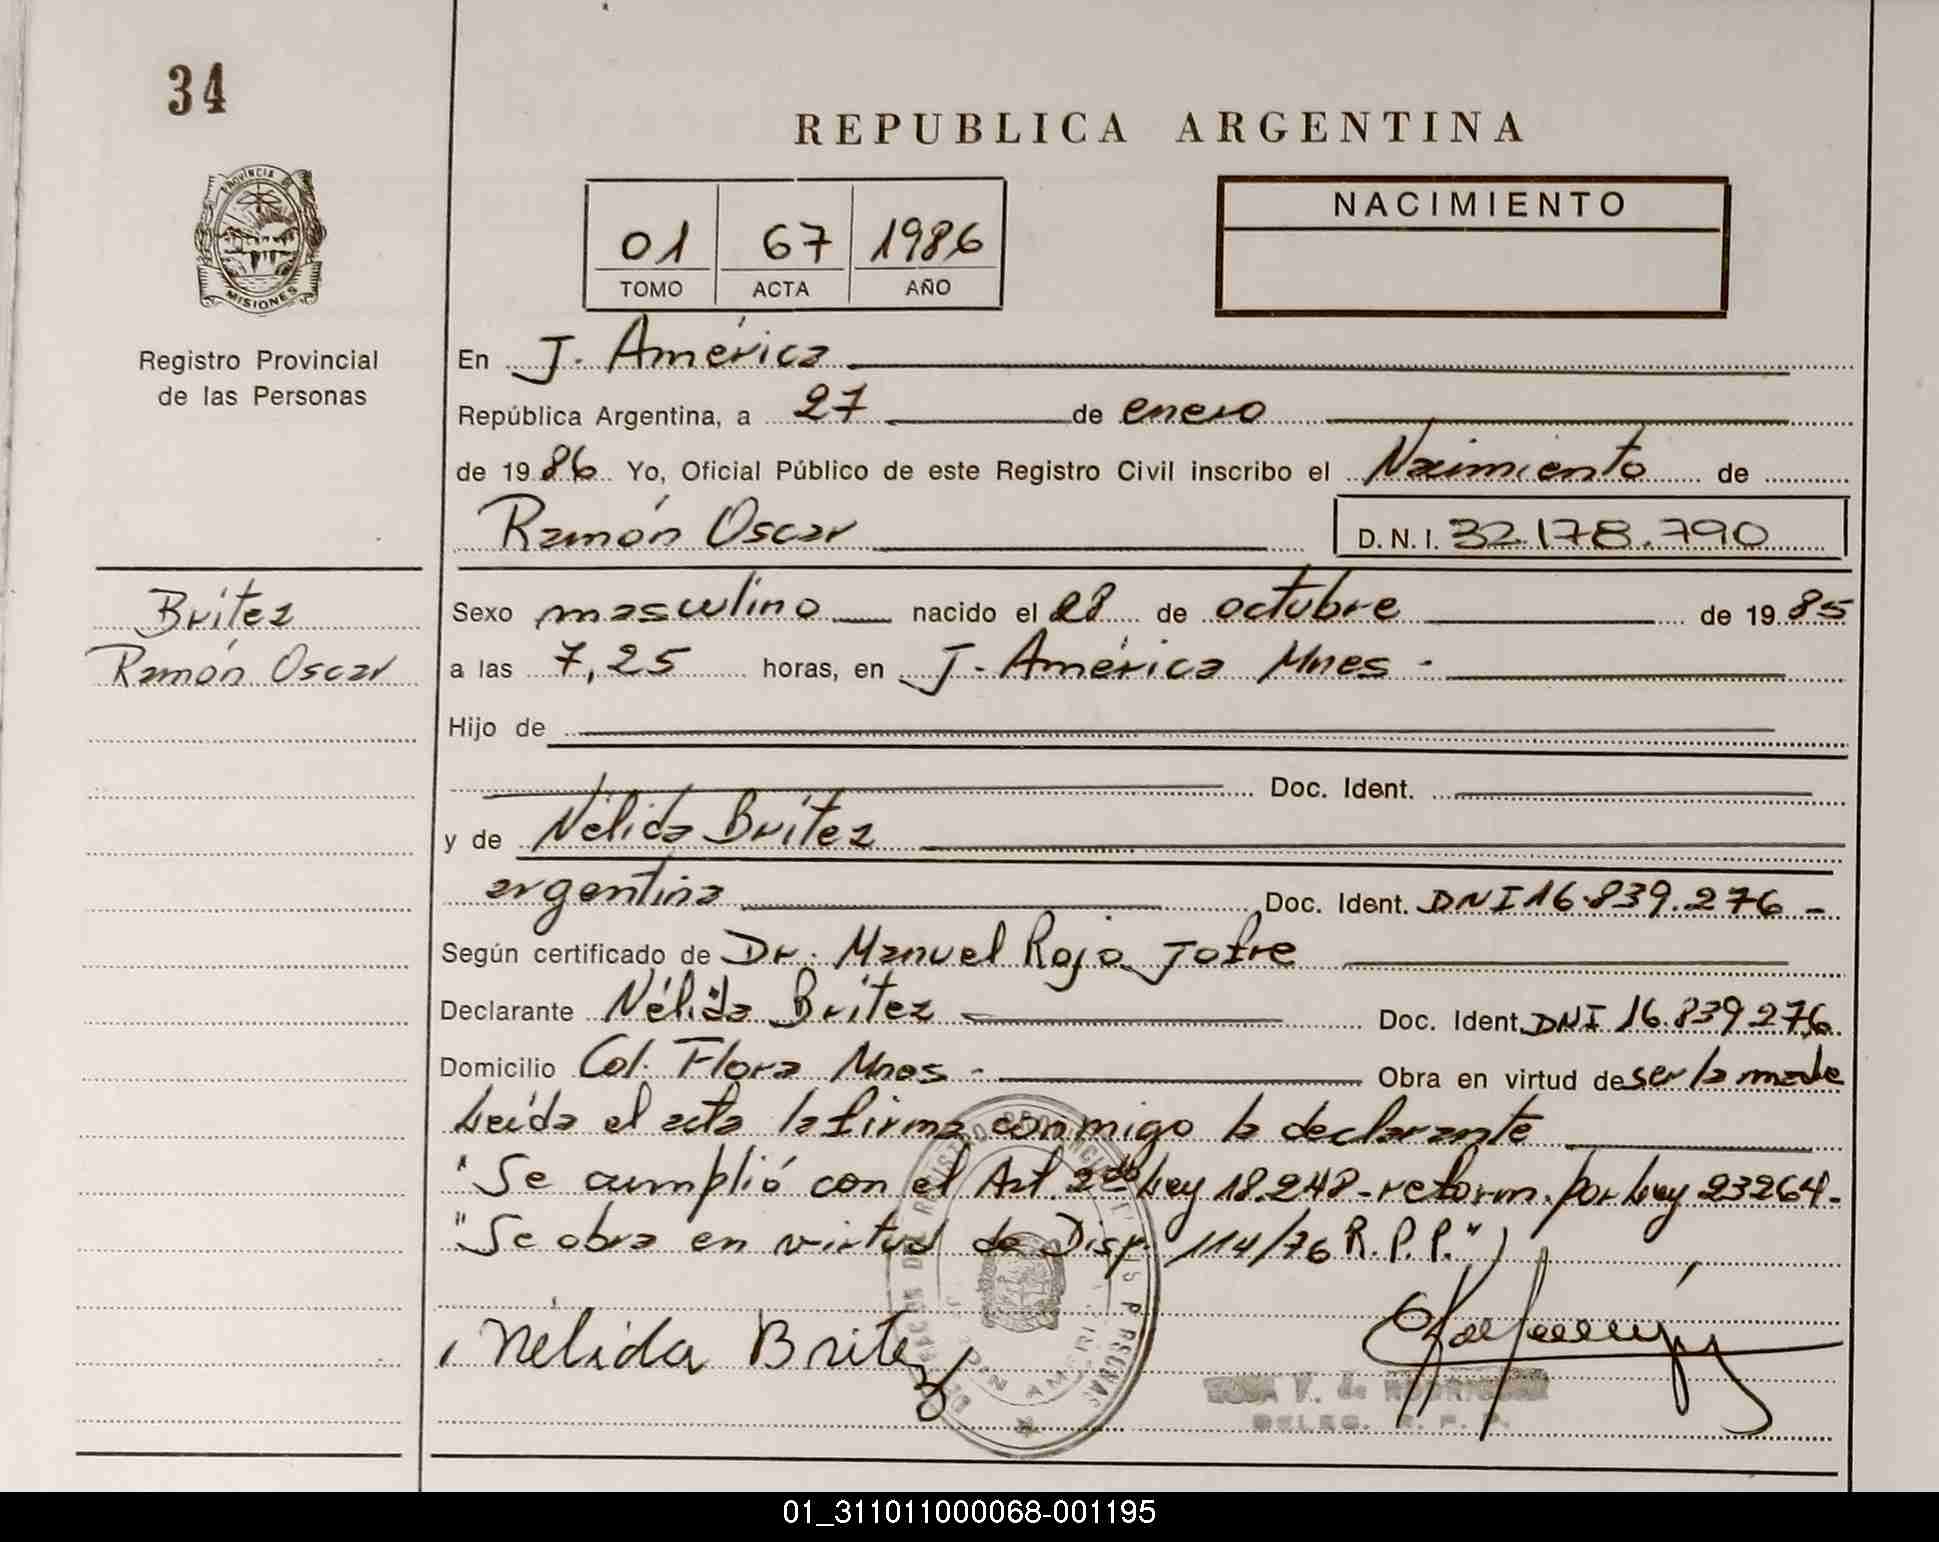 34
REPUBLICA ARGENTINA
PROVINCIA DE
MISIONES
Registro Provincial
de las Personas
01 67 1986
TOMO ACTA AÑO
NACIMIENTO
En J. América
República Argentina, a 27 de enero
de 1986 Yo, Oficial Público de este Registro Civil inscribo el Nacimiento de
Ramón Oscar D.N.I. 32.178.790
Brítez
Ramón Oscar
Sexo masculino nacido el 28 de octubre de 1985
a las 7,25 horas, en J. América Mnes -
Hijo de
Doc. Ident.
y de Nélida Brítez
argentina Doc. Ident. DNI 16.839.276 -
Según certificado de Dr. Manuel Rojo Jofre
Declarante Nélida Brítez Doc. Ident. DNI 16.839.276
Domicilio Col. Flora Mnes - Obra en virtud de ser la madre
Leída el acta la firma conmigo la declarante
"Se cumplió con el Art. 2do Ley 18.248 - reform. por Ley 23264 -
"Se obra en virtud de Disp. 114/76 R.P.P."
Nélida Britez
V. de RODRIGUEZ
DELEG. R. P. P.
01_311011000068-001195